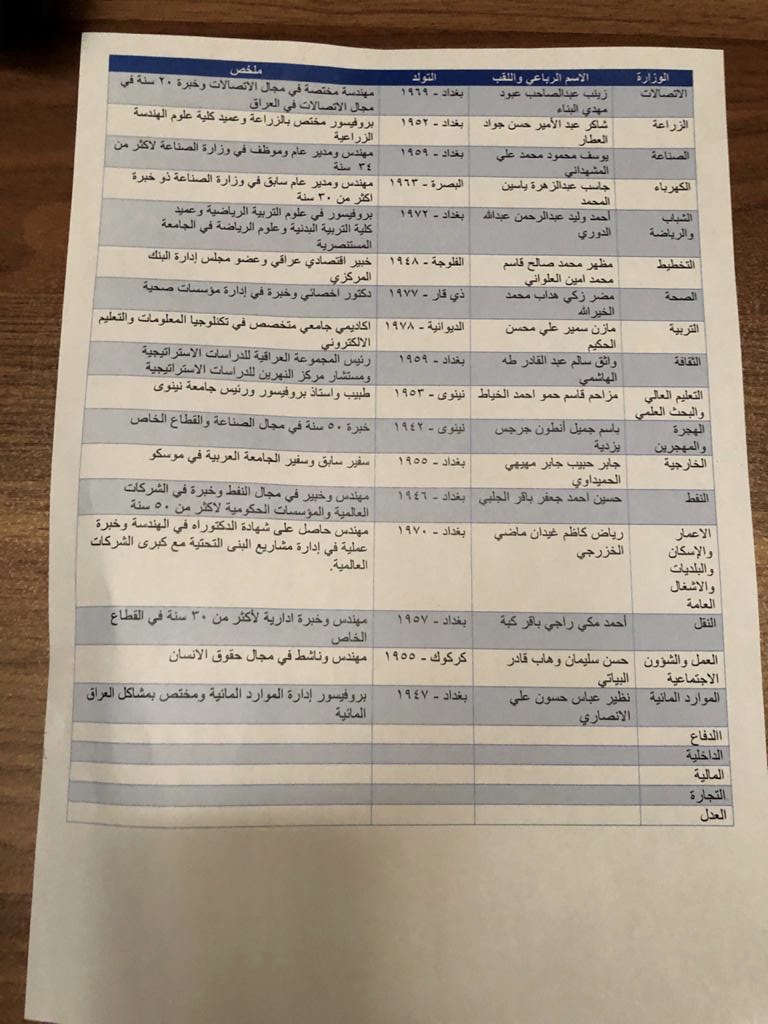 الوزارة الاسم الرباعي واللقب التولد ملخص
الاتصالات زينب عبدالصاحب عبود بغداد - ١٩٦٩ مهندسة مختصة في مجال الاتصالات وخبرة ٢٠ سنة في
مهدي البناء مجال الاتصالات في العراق
الزراعة شاكر عبد الأمير حسن جواد بغداد - ١٩٥٢ بروفيسور مختص بالزراعة وعميد كلية علوم الهندسة
العطار الزراعية
الصناعة يوسف محمود محمد علي بغداد - ١٩٥٩ مهندس ومدير عام وموظف في وزارة الصناعة لاكثر من
المشهداني ٣٤ سنة
الكهرباء جاسب عبدالزهرة ياسين البصرة - ١٩٦٣ مهندس ومدير عام سابق في وزارة الصناعة ذو خبرة
المحمد اكثر من ٣٠ سنة
الشباب أحمد وليد عبدالرحمن عبدالله بغداد - ١٩٧٢ بروفيسور في علوم التربية الرياضية وعميد
والرياضة الدوري كلية التربية البدنية وعلوم الرياضة في الجامعة
المستنصرية
التخطيط مظهر محمد صالح قاسم الفلوجة - ١٩٤٨ خبير اقتصادي عراقي وعضو مجلس إدارة البنك
محمد امين العلواني المركزي
الصحة مضر زكي هداب محمد ذي قار - ١٩٧٧ دكتور اخصائي وخبرة في إدارة مؤسسات صحية
الخيرالله
التربية مازن سمير علي محسن الديوانية - ١٩٧٨ اكاديمي جامعي متخصص في تكنلوجيا المعلومات والتعليم
الحكيم الالكتروني
الثقافة واثق سالم عبد القادر طه بغداد - ١٩٥٩ رئيس المجموعة العراقية للدراسات الاستراتيجية
الهاشمي ومستشار مركز النهرين للدراسات الاستراتيجية
التعليم العالي مزاحم قاسم حمو احمد الخياط نينوى - ١٩٥٣ طبيب واستاذ بروفيسور ورئيس جامعة نينوى
والبحث العلمي
الهجرة باسم جميل أنطون جرجس نينوى - ١٩٤٢ خبرة ٥٠ سنة في مجال الصناعة والقطاع الخاص
والمهجرين يزدية
الخارجية جابر حبيب جابر مهيهي بغداد - ١٩٥٥ سفير سابق وسفير الجامعة العربية في موسكو
الحميداوي
النفط حسين احمد جعفر باقر الجلبي بغداد - ١٩٤٦ مهندس وخبير في مجال النفط وخبرة في الشركات
العالمية والمؤسسات الحكومية لاكثر من ٥٠ سنة
الاعمار رياض كاظم غيدان ماضي بغداد - ١٩٧٠ مهندس حاصل على شهادة الدكتوراه في الهندسة وخبرة
والإسكان الخزرجي عملية في إدارة مشاريع البنى التحتية مع كبرى الشركات
والبلديات العالمية.
والاشغال
العامة
النقل أحمد مكي راجي باقر كبة بغداد - ١٩٥٧ مهندس وخبرة ادارية لأكثر من ٣٠ سنة في القطاع
الخاص
العمل والشؤون حسن سليمان وهاب قادر كركوك - ١٩٥٥ مهندس وناشط في مجال حقوق الانسان
الاجتماعية البياتي
الموارد المائية نظير عباس حسون علي بغداد - ١٩٤٧ بروفيسور إدارة الموارد المائية ومختص بمشاكل العراق
الانصاري المائية
االدفاع
الداخلية
المالية
التجارة
العدل